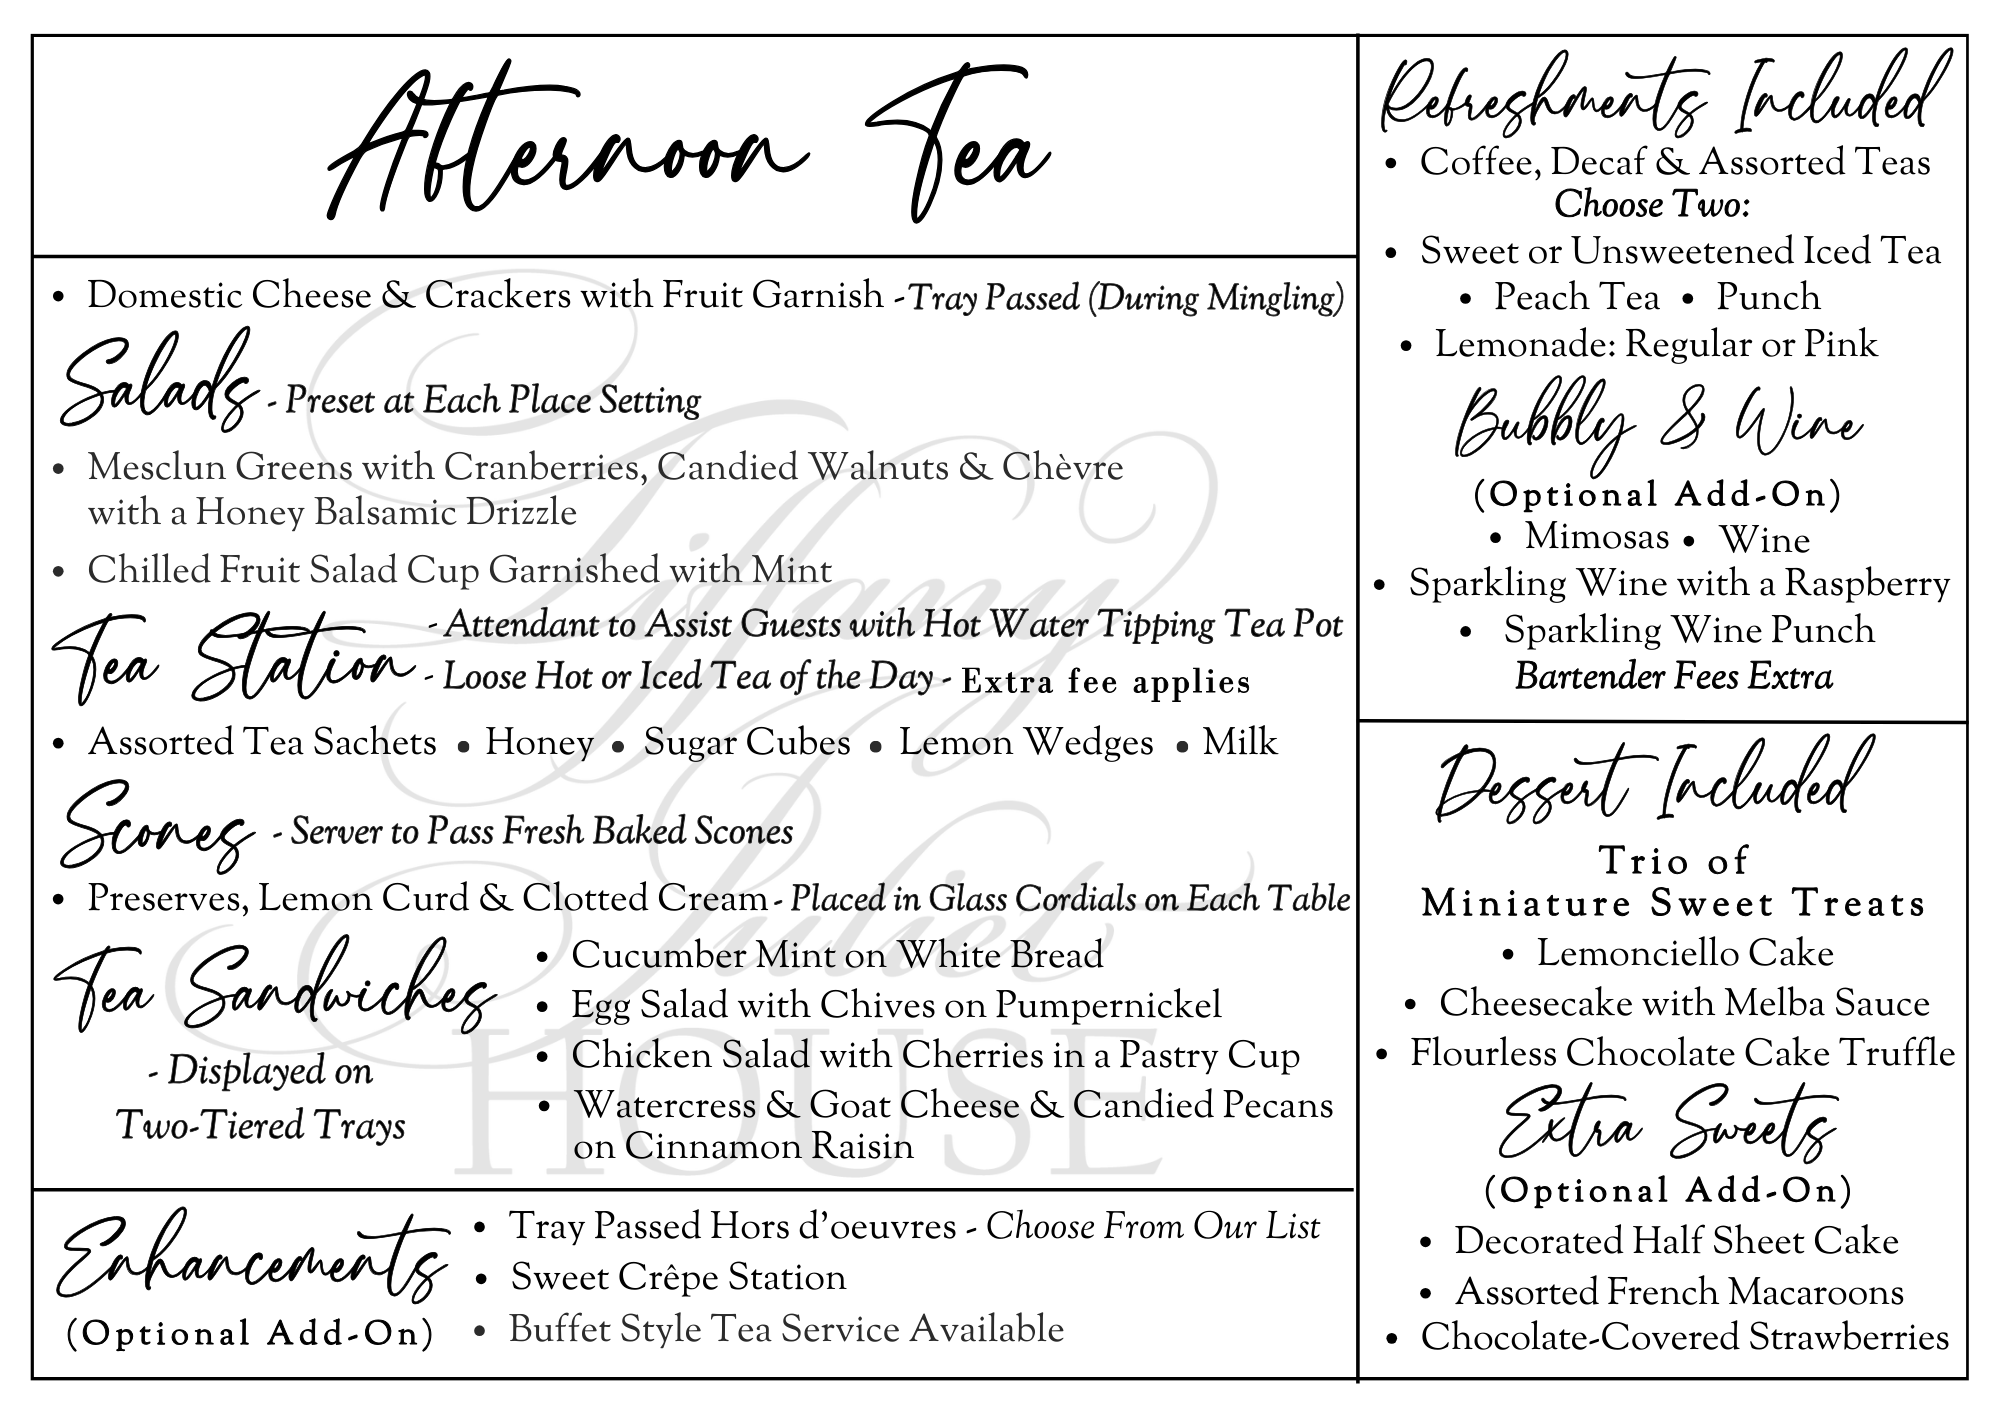 Afternoon Tea
• Domestic Cheese & Crackers with Fruit Garnish -Tray Passed (During Mingling)
Salads - Preset at Each Place Setting
• Mesclun Greens with Cranberries, Candied Walnuts & Chèvre
with a Honey Balsamic Drizzle
• Chilled Fruit Salad Cup Garnished with Mint
Tea Station - Attendant to Assist Guests with Hot Water Tipping Tea Pot
- Loose Hot or Iced Tea of the Day - Extra fee applies
• Assorted Tea Sachets • Honey • Sugar Cubes • Lemon Wedges • Milk
Scones - Server to Pass Fresh Baked Scones
• Preserves, Lemon Curd & Clotted Cream - Placed in Glass Cordials on Each Table
Tea Sandwiches
- Displayed on
Two-Tiered Trays
• Cucumber Mint on White Bread
• Egg Salad with Chives on Pumpernickel
• Chicken Salad with Cherries in a Pastry Cup
• Watercress & Goat Cheese & Candied Pecans
on Cinnamon Raisin
Enhancements
(Optional Add-On)
• Tray Passed Hors d'oeuvres - Choose From Our List
• Sweet Crêpe Station
• Buffet Style Tea Service Available
Refreshments Included
• Coffee, Decaf & Assorted Teas
Choose Two:
• Sweet or Unsweetened Iced Tea
• Peach Tea • Punch
• Lemonade: Regular or Pink
Bubbly & Wine
(Optional Add-On)
• Mimosas • Wine
• Sparkling Wine with a Raspberry
• Sparkling Wine Punch
Bartender Fees Extra
Dessert Included
Trio of
Miniature Sweet Treats
• Lemonciello Cake
• Cheesecake with Melba Sauce
• Flourless Chocolate Cake Truffle
Extra Sweets
(Optional Add-On)
• Decorated Half Sheet Cake
• Assorted French Macaroons
• Chocolate-Covered Strawberries
Tiffany
Juliet
HOUSE